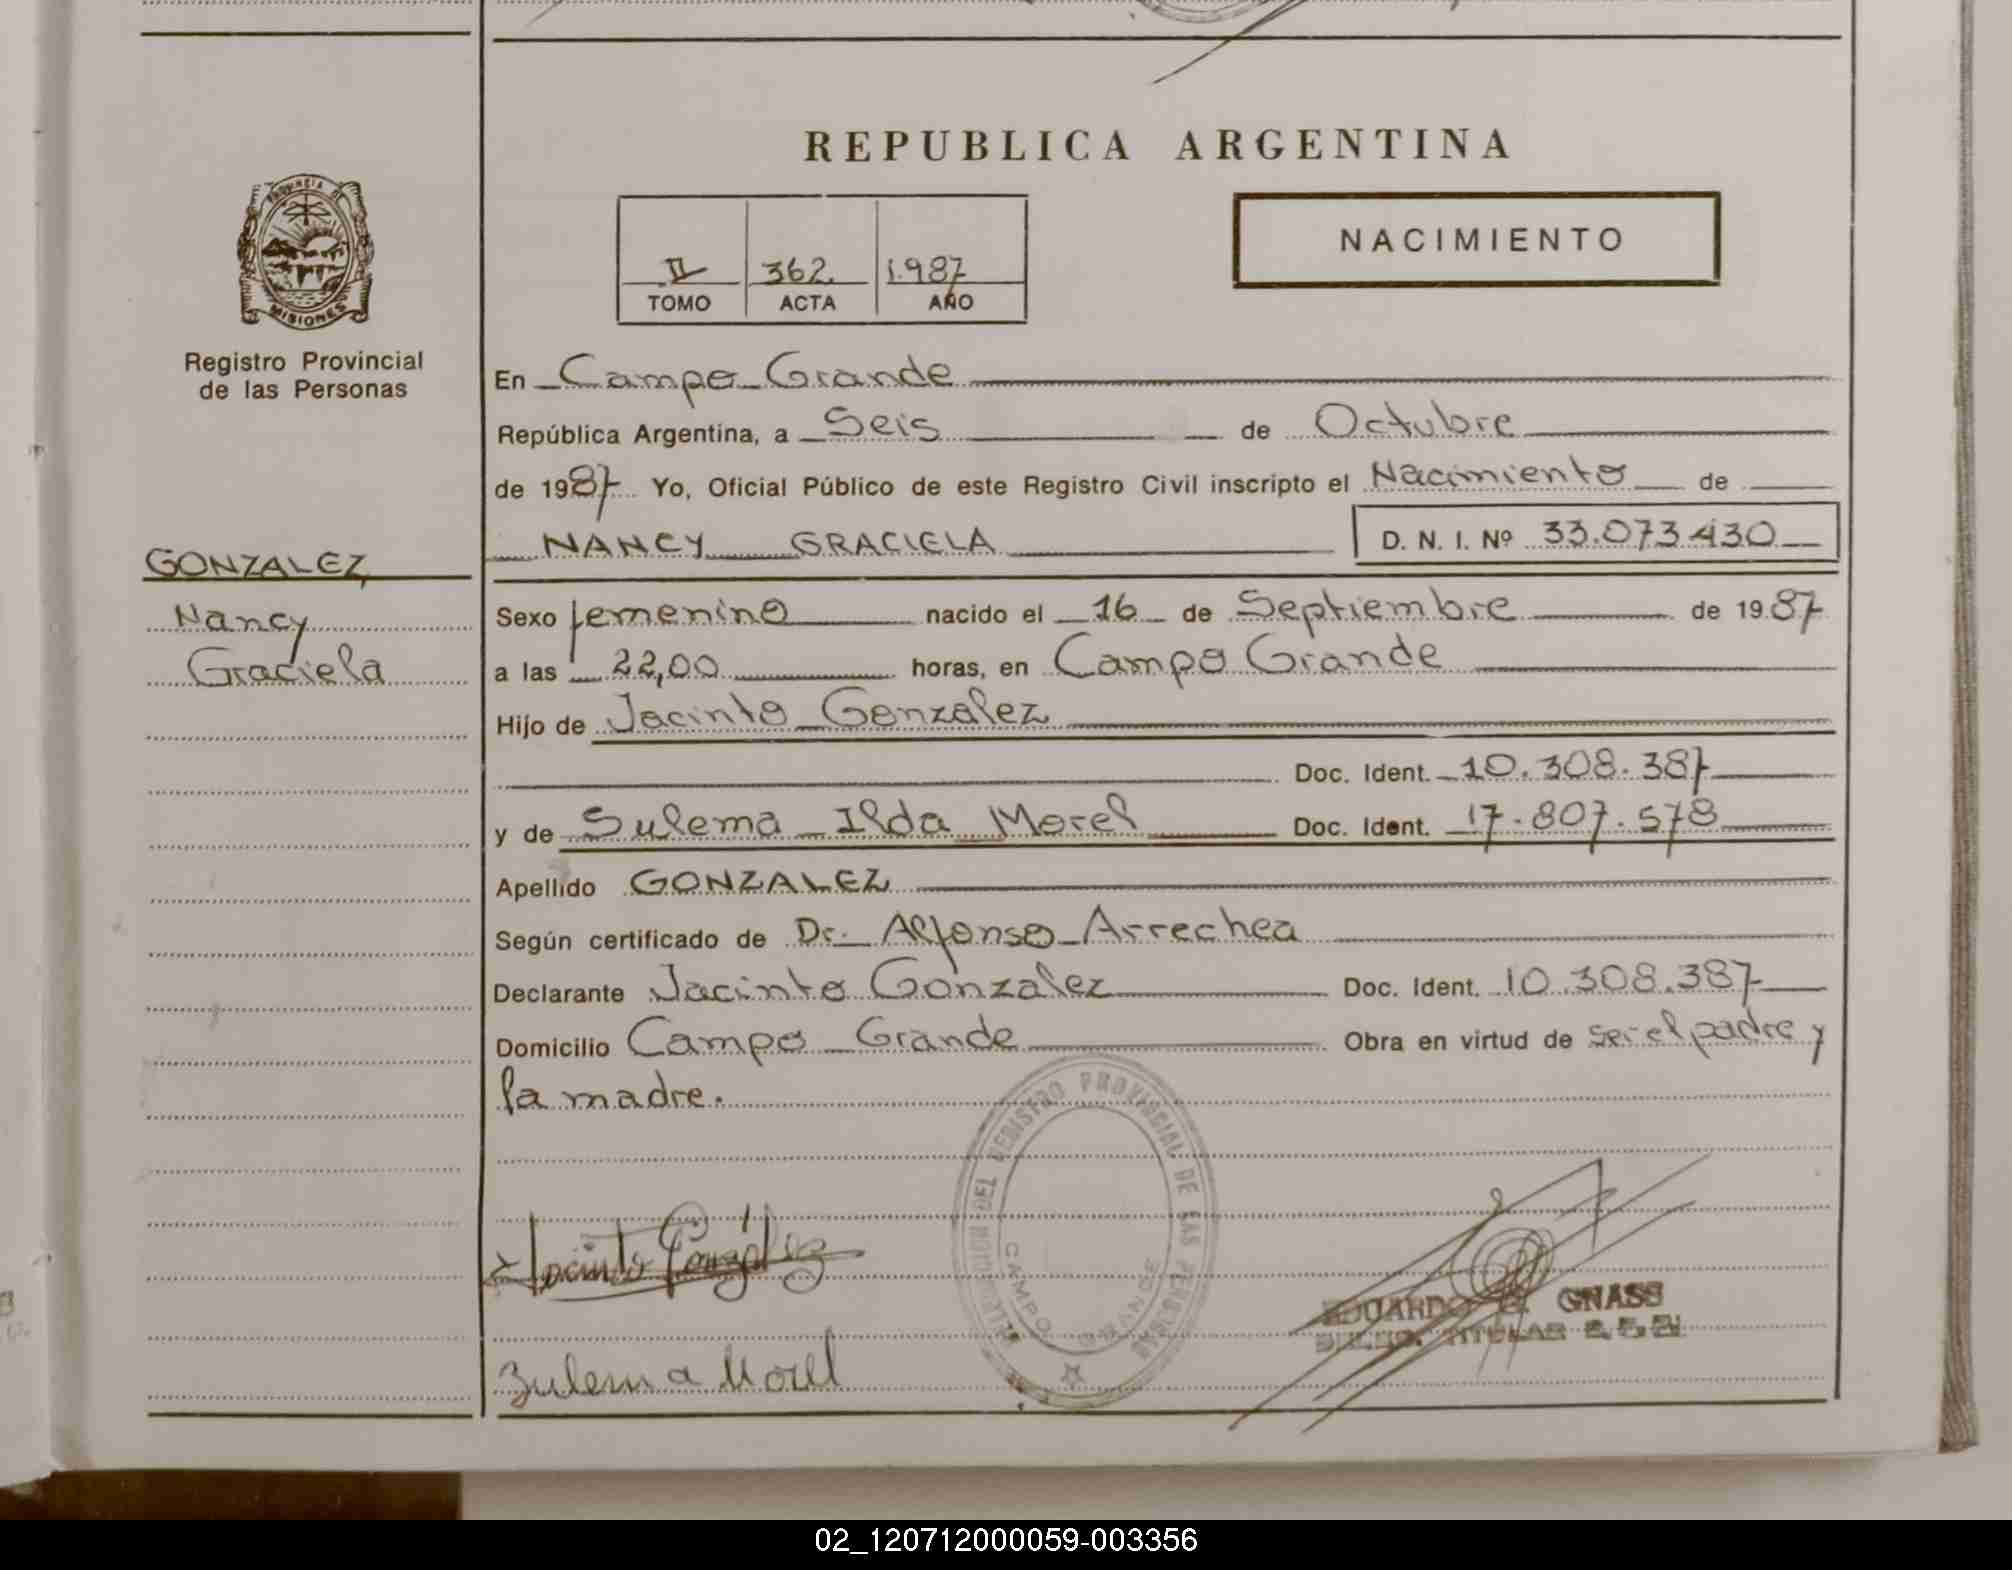 REPUBLICA ARGENTINA
PROVINCIA DE
MISIONES
Registro Provincial
de las Personas
NACIMIENTO
II 362. 1.987
TOMO ACTA AÑO
En Campo Grande
República Argentina, a Seis de Octubre
de 1987 Yo, Oficial Público de este Registro Civil inscripto el Nacimiento de
NANCY GRACIELA D. N. I. Nº 33.073.430
GONZALEZ,
Nancy
Graciela
Sexo femenino nacido el 16 de Septiembre de 1987
a las 22,00 horas, en Campo Grande
Hijo de Jacinto Gonzalez
Doc. Ident. 10.308.387
y de Sulema Ilda Morel Doc. Ident. 17.807.578
Apellido GONZALEZ
Según certificado de Dr. Alfonso Arrechea
Declarante Jacinto Gonzalez Doc. Ident. 10.308.387
Domicilio Campo Grande Obra en virtud de ser el padre y
la madre.
DELEGACION DEL REGISTRO PROVINCIAL DE LAS PERSONAS
CAMPO GRANDE
Jacinto González
EDUARDO GNASS
TITULAR
Zulema Morel
02_120712000059-003356